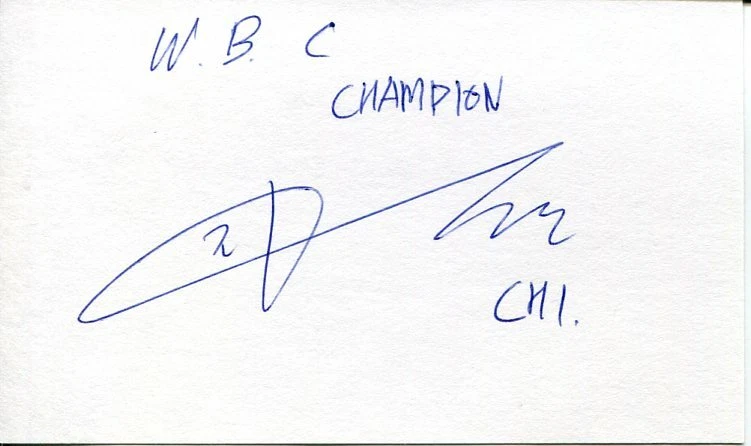 W. B. C
CHAMPION
CHI.